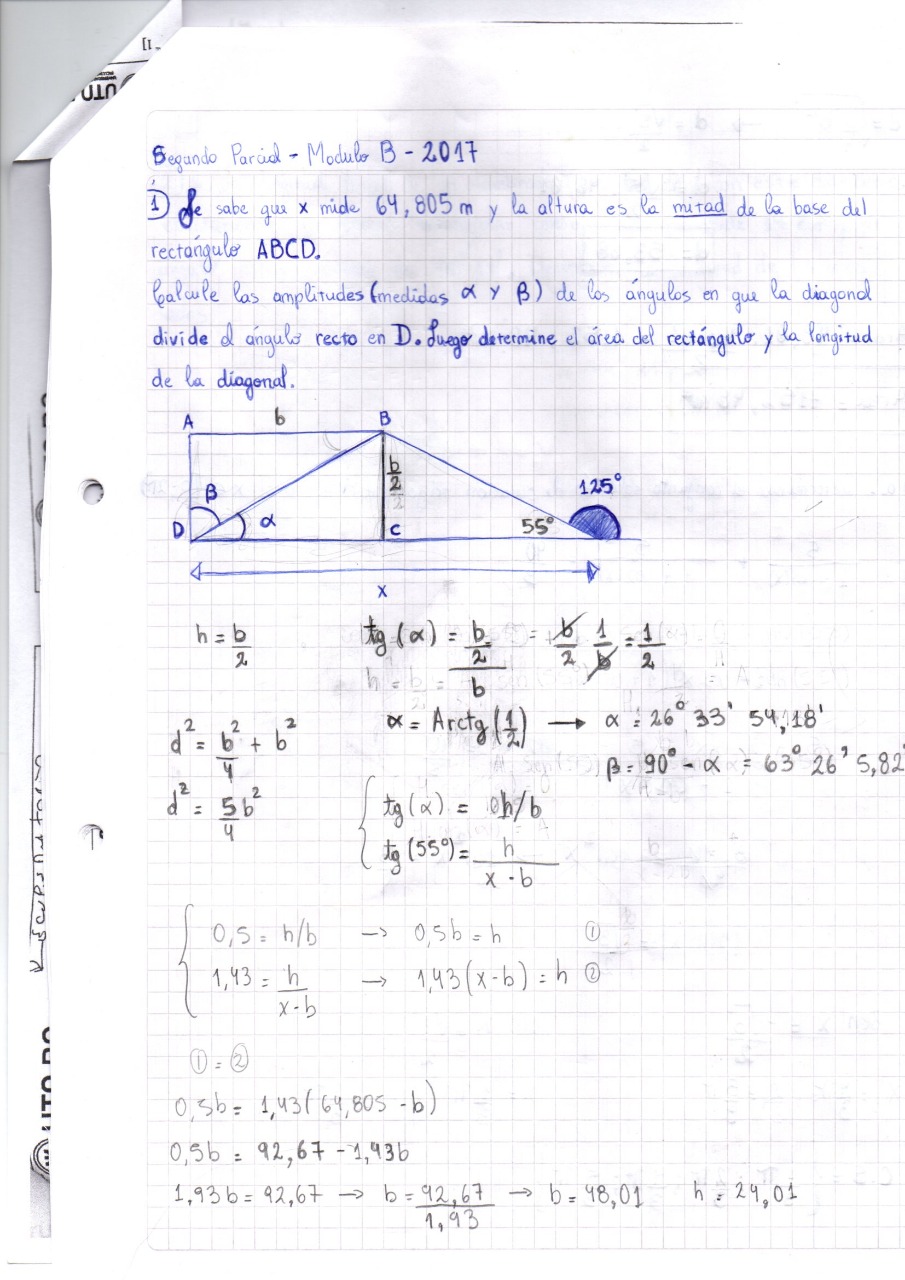 Segundo Parcial - Modulo B - 2017
1) Se sabe que x mide 64,805 m y la altura es la mitad de la base del
rectángulo ABCD.
Calcule las amplitudes (medidas α y β) de los ángulos en que la diagonal
divide el ángulo recto en D. Luego determine el área del rectángulo y la longitud
de la diagonal.
A b B
b/2
125°
β
D α C 55°
x
h = b/2
tg (α) = (b/2)/b = b/2 · 1/b = 1/2
α = Arctg(1/2) → α = 26° 33' 54,18'
d² = b²/4 + b²
β = 90° - α = 63° 26' 5,82'
d² = 5b²/4
tg(α) = h/b
tg(55°) = h/(x-b)
0,5 = h/b → 0,5b = h ①
1,43 = h/(x-b) → 1,43(x-b) = h ②
① = ②
0,5b = 1,43(64,805 - b)
0,5b = 92,67 - 1,43b
1,93b = 92,67 → b = 92,67/1,93 → b = 48,01 h = 24,01